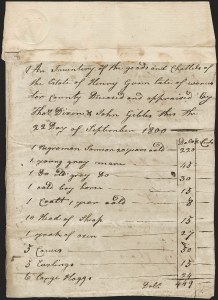 An Inventory of the goods and Chattles of
the Estate of Henry Gunn late of
County Deceased and appraised by
Thos. Dixon & John Gibbs this the
22 Day of September 1800
Dolls
1 Negroman 20 years old 220
1 young gray mare 45
1 Do old gray Do 30
1 old bay horse 15
1 Coatt 1 year old 8
10 Head of Sheep 15
1 yoak of oxen 27
5 Cows 50
5 Earlings 15
12 Large Hoggs 24
Dolls 449